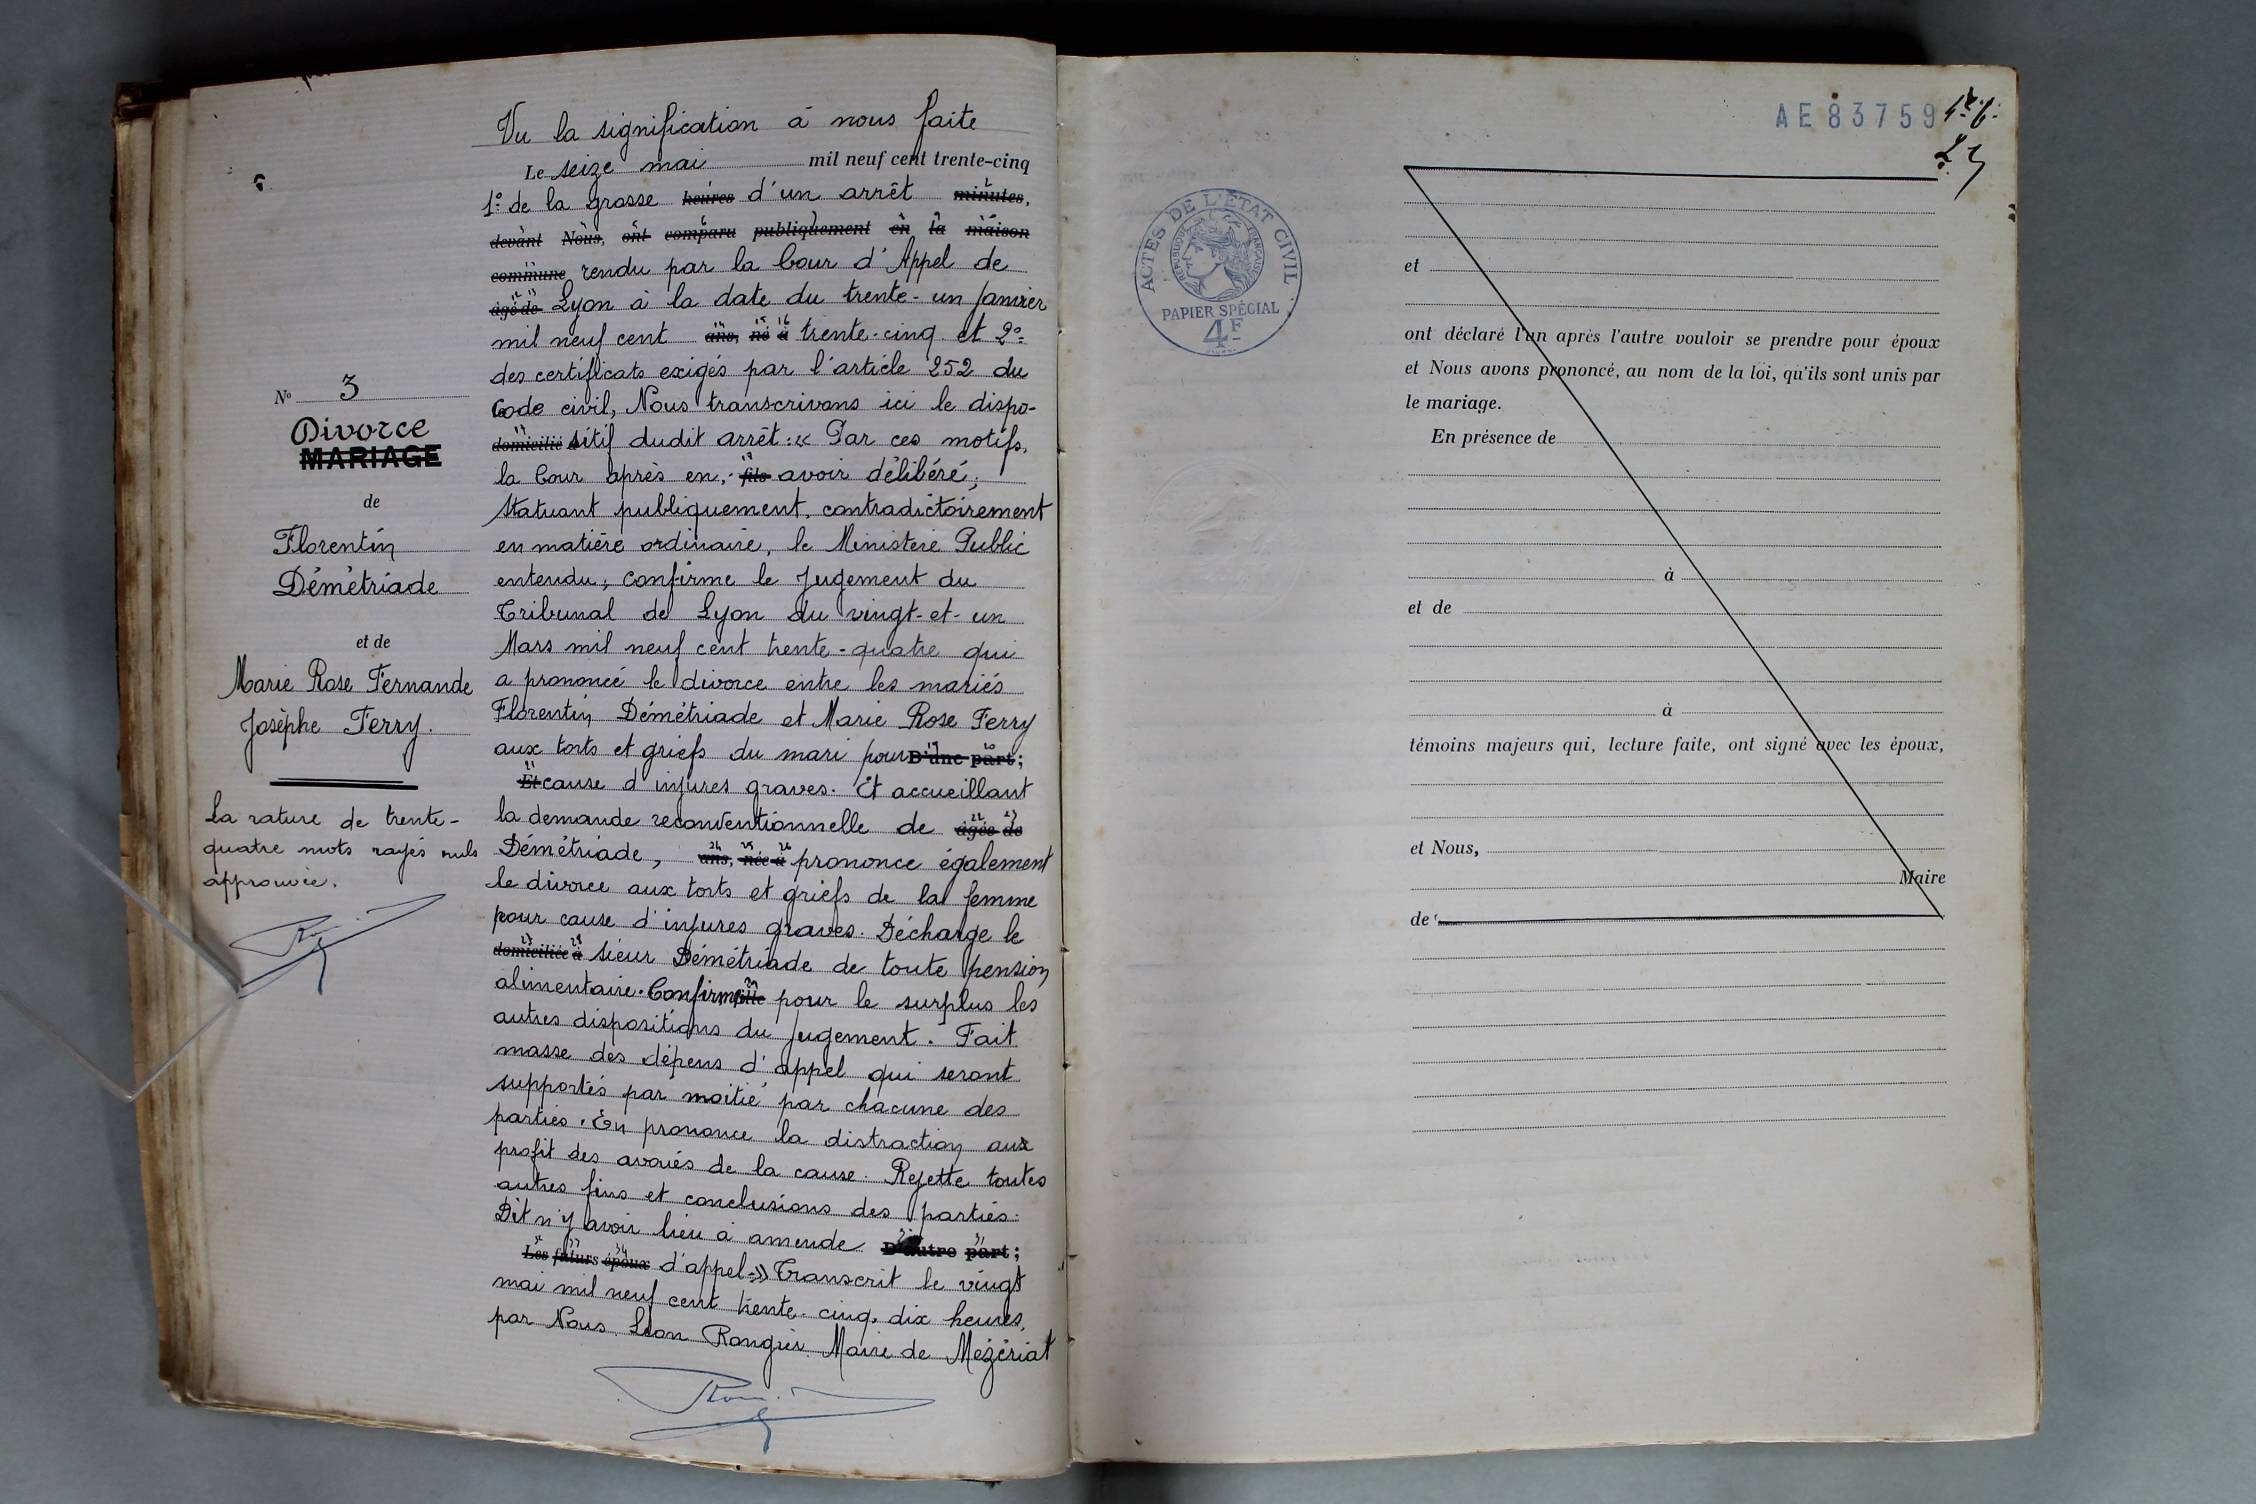 Vu la signification à nous faite
Le seize mai mil neuf cent trente-cinq
1º de la grosse heures d'un arrêt minutes,
devant Nous, ont comparu publiquement en la maison
commune rendu par la Cour d'Appel de
âgé de Lyon à la date du trente-un Janvier
mil neuf cent ans, né à trente-cinq et 2º
des certificats exigés par l'article 252 du
Code civil, Nous transcrivons ici le dispo-
domicilié sitif dudit arrêt: « Par ces motifs,
la Cour après en, fils avoir délibéré;
Statuant publiquement, contradictoirement
en matière ordinaire, le Ministère Public
entendu; confirme le Jugement du
Tribunal de Lyon du vingt-et-un
Mars mil neuf cent trente-quatre qui
a prononcé le divorce entre les mariés
Florentin Démétriade et Marie Rose Ferry
aux torts et griefs du mari pour D'une part;
Et cause d'injures graves. Et accueillant
la demande reconventionnelle de âgée de
Démétriade, ans, née à prononce également
le divorce aux torts et griefs de la femme
pour cause d'injures graves. Décharge le
domiciliée à sieur Démétriade de toute pension
alimentaire. Confirme fille pour le surplus les
autres dispositions du Jugement. Fait
masse des dépens d'appel qui seront
supportés par moitié par chacune des
parties. En prononce la distraction aux
profit des avoués de la cause. Rejette toutes
autres fins et conclusions des parties.
Dit n'y avoir lieu à amende D'autre part;
Les futurs époux d'appel» Transcrit le vingt
mai mil neuf cent trente-cinq, dix heures,
par Nous, Léon Rongier Maire de Mézériat
Nº 3
Divorce
MARIAGE
de
Florentin
Démétriade
et de
Marie Rose Fernande
Josèphe Ferry.
La rature de trente-
quatre mots rayés nuls
approuvée.
AE 83759
ACTES DE L'ÉTAT CIVIL
RÉPUBLIQUE FRANÇAISE
PAPIER SPÉCIAL
4F
et
ont déclaré l'un après l'autre vouloir se prendre pour époux
et Nous avons prononcé, au nom de la loi, qu'ils sont unis par
le mariage.
En présence de
à
et de
à
témoins majeurs qui, lecture faite, ont signé avec les époux,
et Nous,
Maire
de